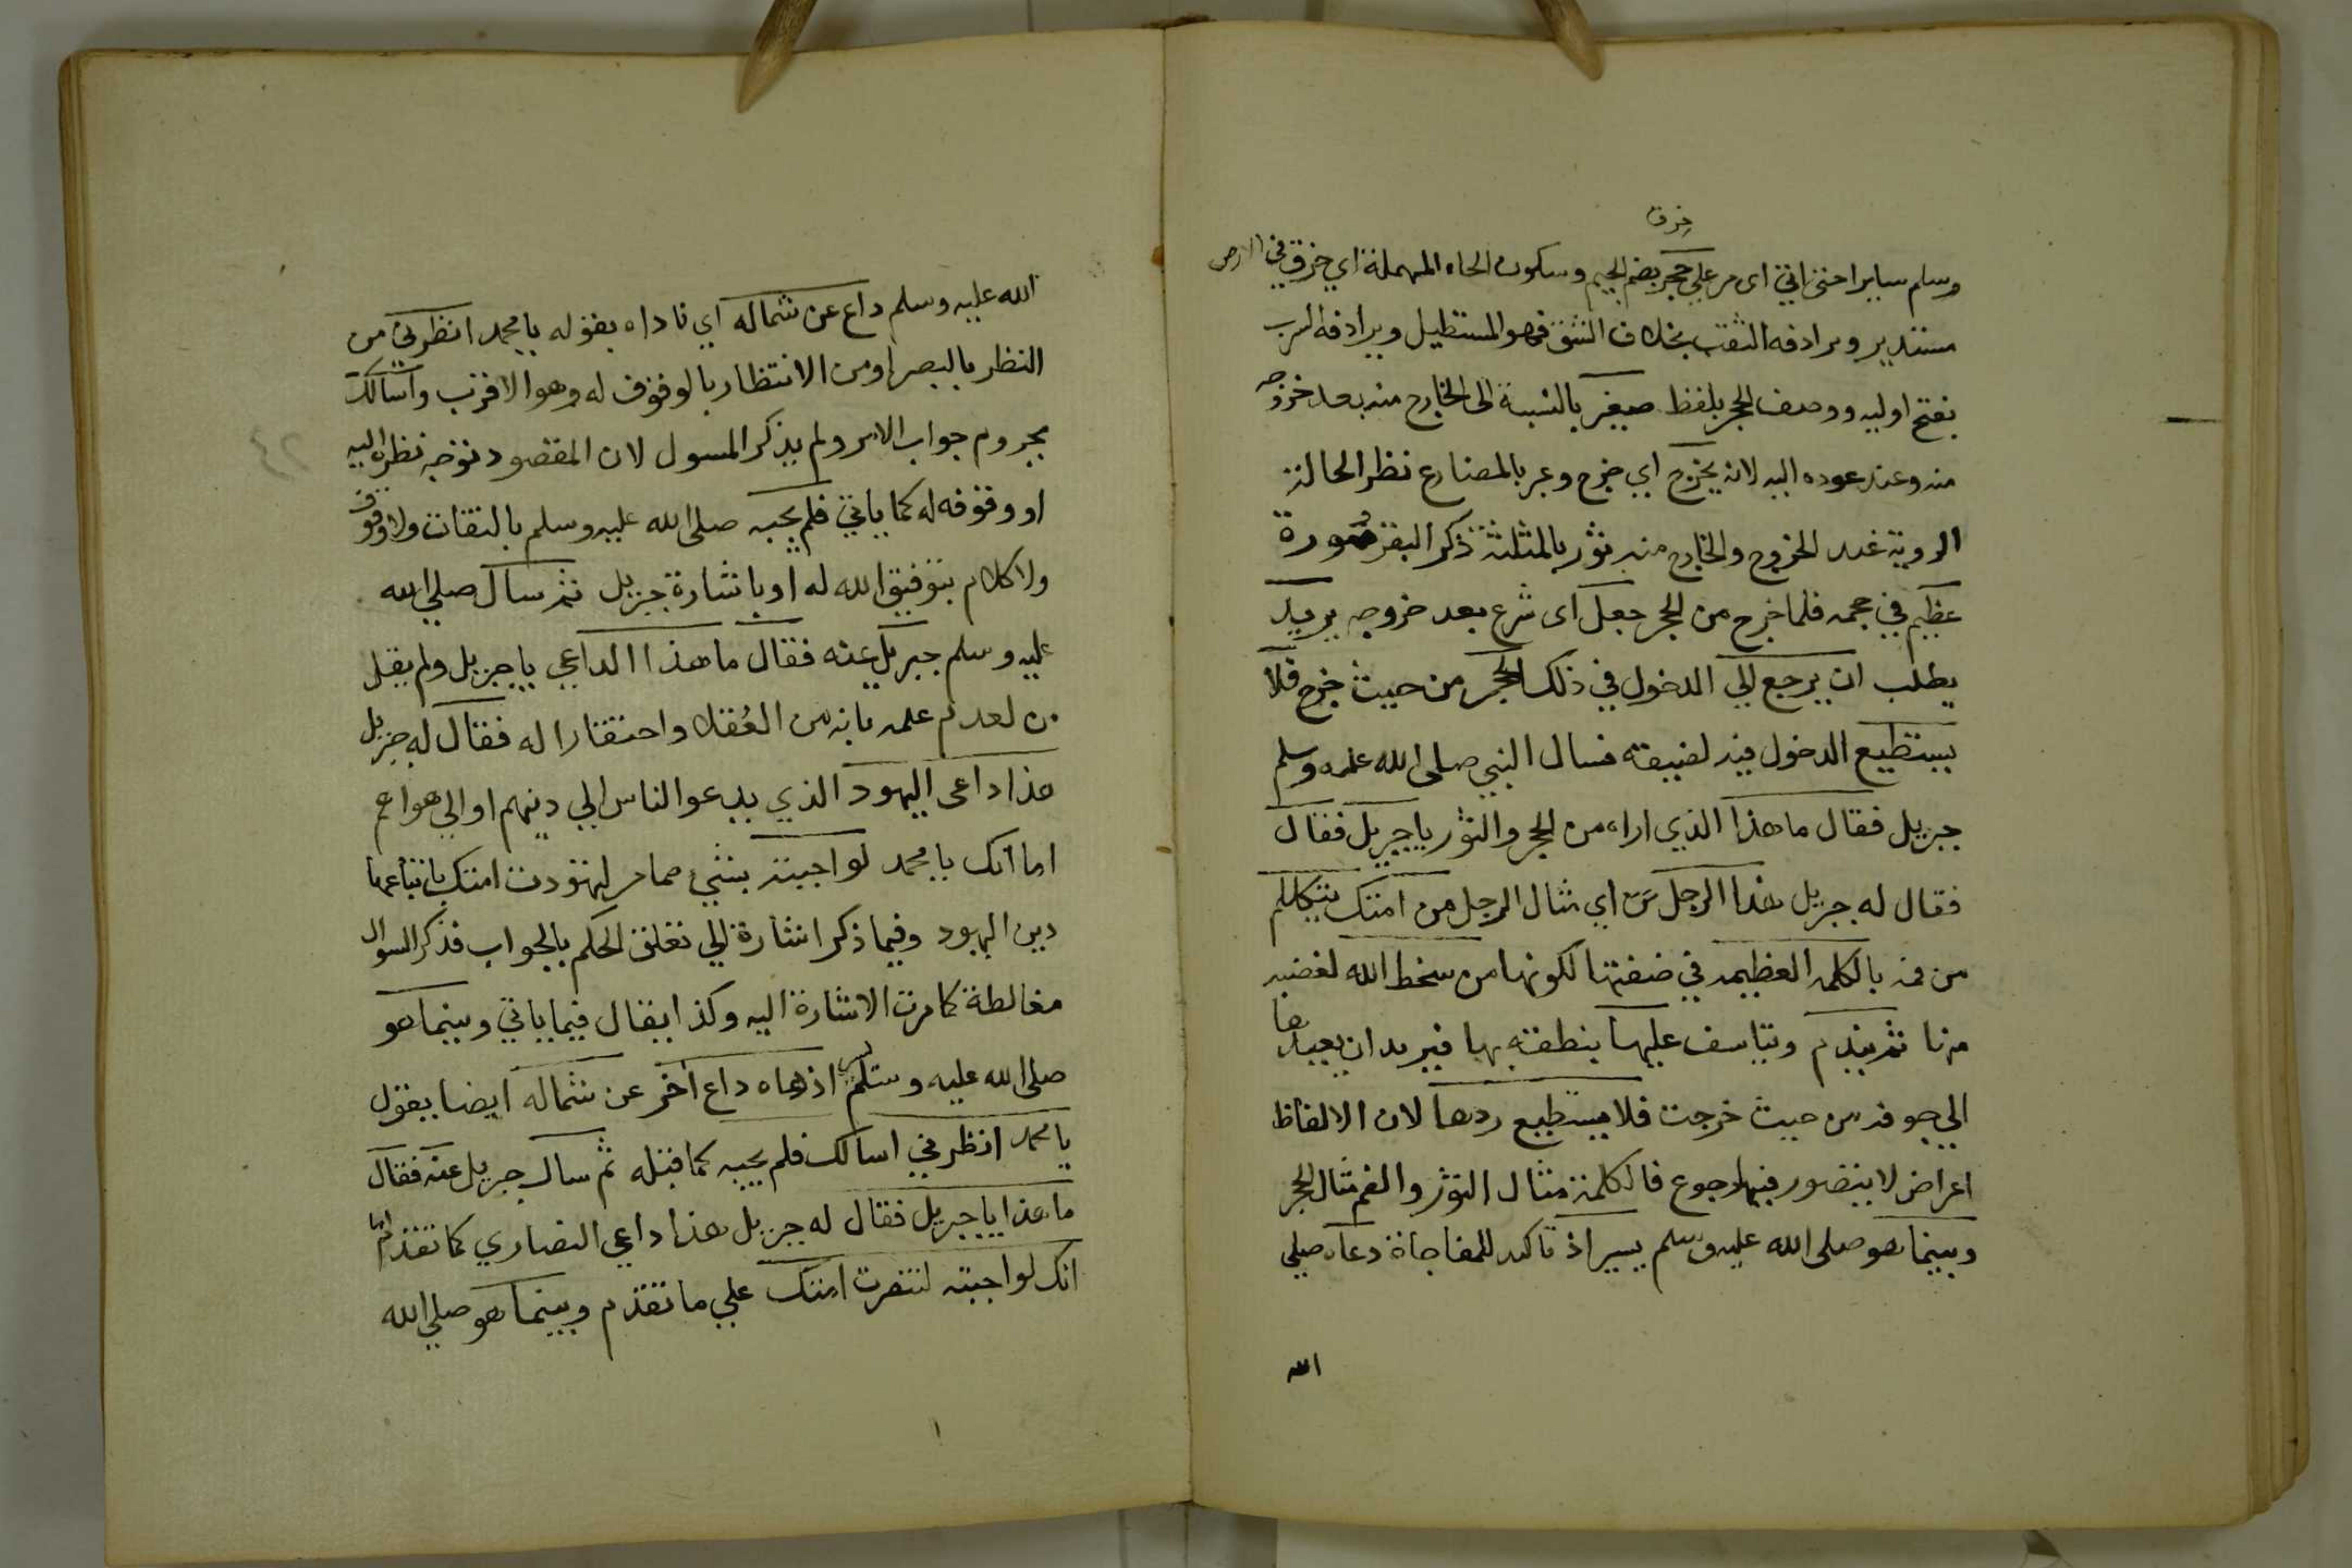 خرق
وسلم سايرا حتى اتى اى مر على حجر بضم الجيم وسكون الحاء المهملة اي خرق في الارض
مستدير ويرادفه الثقب بخلاف الشق فهو المستطيل ويرادفه السرب
بفتح اوليه ووصف الحجر بلفظ صغير بالنسبة الى الخارج منه بعد خروجه
منه وعند عوده اليه لانه يخرج اي خرج وعبر بالمضارع نظر الحالة
الروية عند الخروج والخارج منه ثور بالمثلثة ذكر البقر صورة
عظيم في حجمه فلما خرج من الحجر جعل اى شرع بعد خروجه يريد
يطلب ان يرجع الي الدخول في ذلك الحجر من حيث خرج فلا
يستطيع الدخول فيه لضيقه فسال النبي صلى الله عليه وسلم
جبريل فقال ما هذا الذي اراه من الحجر والثور يا جبريل فقال
فقال له جبريل هذا الرجل اي مثال الرجل من امتك يتكلم
من فمه بالكلمه العظيمه في صفتها لكونها من سخط الله لغضبه
منها ثم يندم ويتاسف عليها بنطقه بها فيريد ان يعيدها
الي جوفه من حيث خرجت فلا يستطيع ردها لان الالفاظ
اعراض لا يتصور فيها رجوع فالكلمة مثال الثور والفم مثال الحجر
وبينما هو صلى الله عليه وسلم يسير اذ تاكيد للمفاجاة دعاه صلي
الله
الله عليه وسلم داع عن شماله اي ناداه بقوله يا محمد انظرني من
النظر بالبصر او من الانتظار بالوقوف له وهو الاقرب واسالك
مجروم جواب الامر ولم يذكر المسول لان المقصود توجه نظره اليه
او وقوفه له كما ياتي فلم يجبه صلى الله عليه وسلم بالتفات ولا وقوف
ولا كلام بتوفيق الله له او باشارة جبريل ثم سال صلي الله
عليه وسلم جبريل عنه فقال ما هذا الداعي يا جبريل ولم يقل
من لعدم علمه بانه من العقلا واحتقارا له فقال له جبريل
هذا داعى اليهود الذي يدعو الناس الي دينهم او الي هواهم
اما انك يا محمد لو اجبته بشي مما مر لتهودت امتك باتباعها
دين اليهود وفيما ذكر اشارة الي تعلق الحكم بالجواب فذكر السوال
مغالطة كما مرت الاشارة اليه وكذا يقال فيما ياتي وبينما هو
صلى الله عليه وسلم يسير اذ دعاه داع اخر عن شماله ايضا يقول
يا محمد انظرني اسالك فلم يجبه كما قبله ثم سال جبريل عنه فقال
ما هذا يا جبريل فقال له جبريل هذا داعي النصاري كما تقدم اما
انك لو اجبته لتنصرت امتك علي ما تقدم وبينما هو صلي الله
٤٢